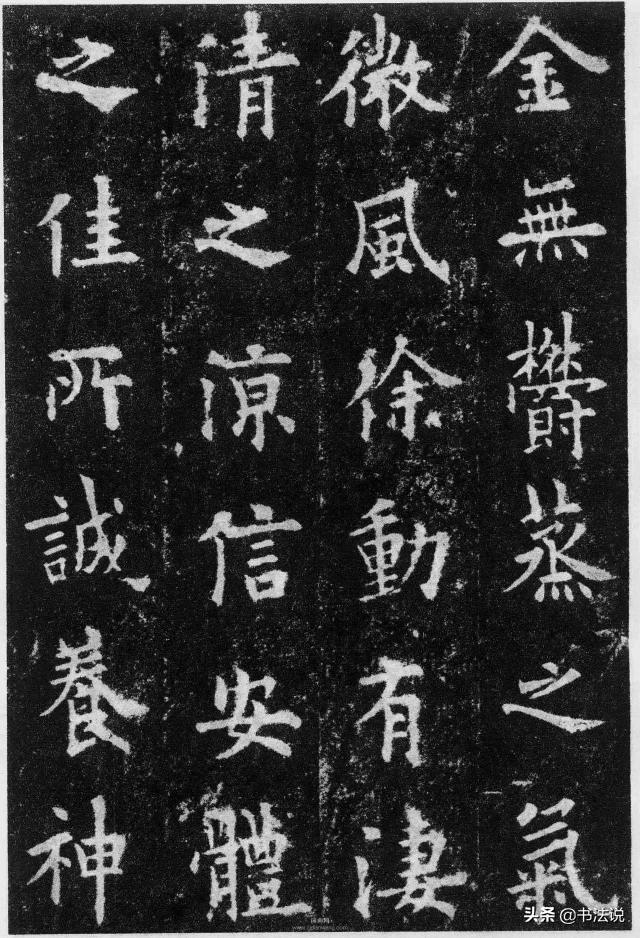 金無鬱蒸之氣
微風徐動有淒
清之涼信安體
之佳所誠養神
头条 @书法说